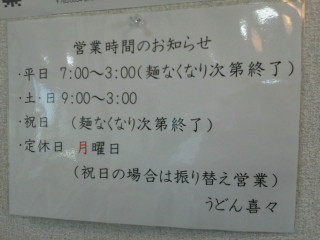 営業時間のお知らせ
・平日 7:00～3:00(麺なくなり次第終了)
・土・日 9:00～3:00
・祝日 (麺なくなり次第終了)
・定休日 月曜日
(祝日の場合は振り替え営業)
うどん喜々